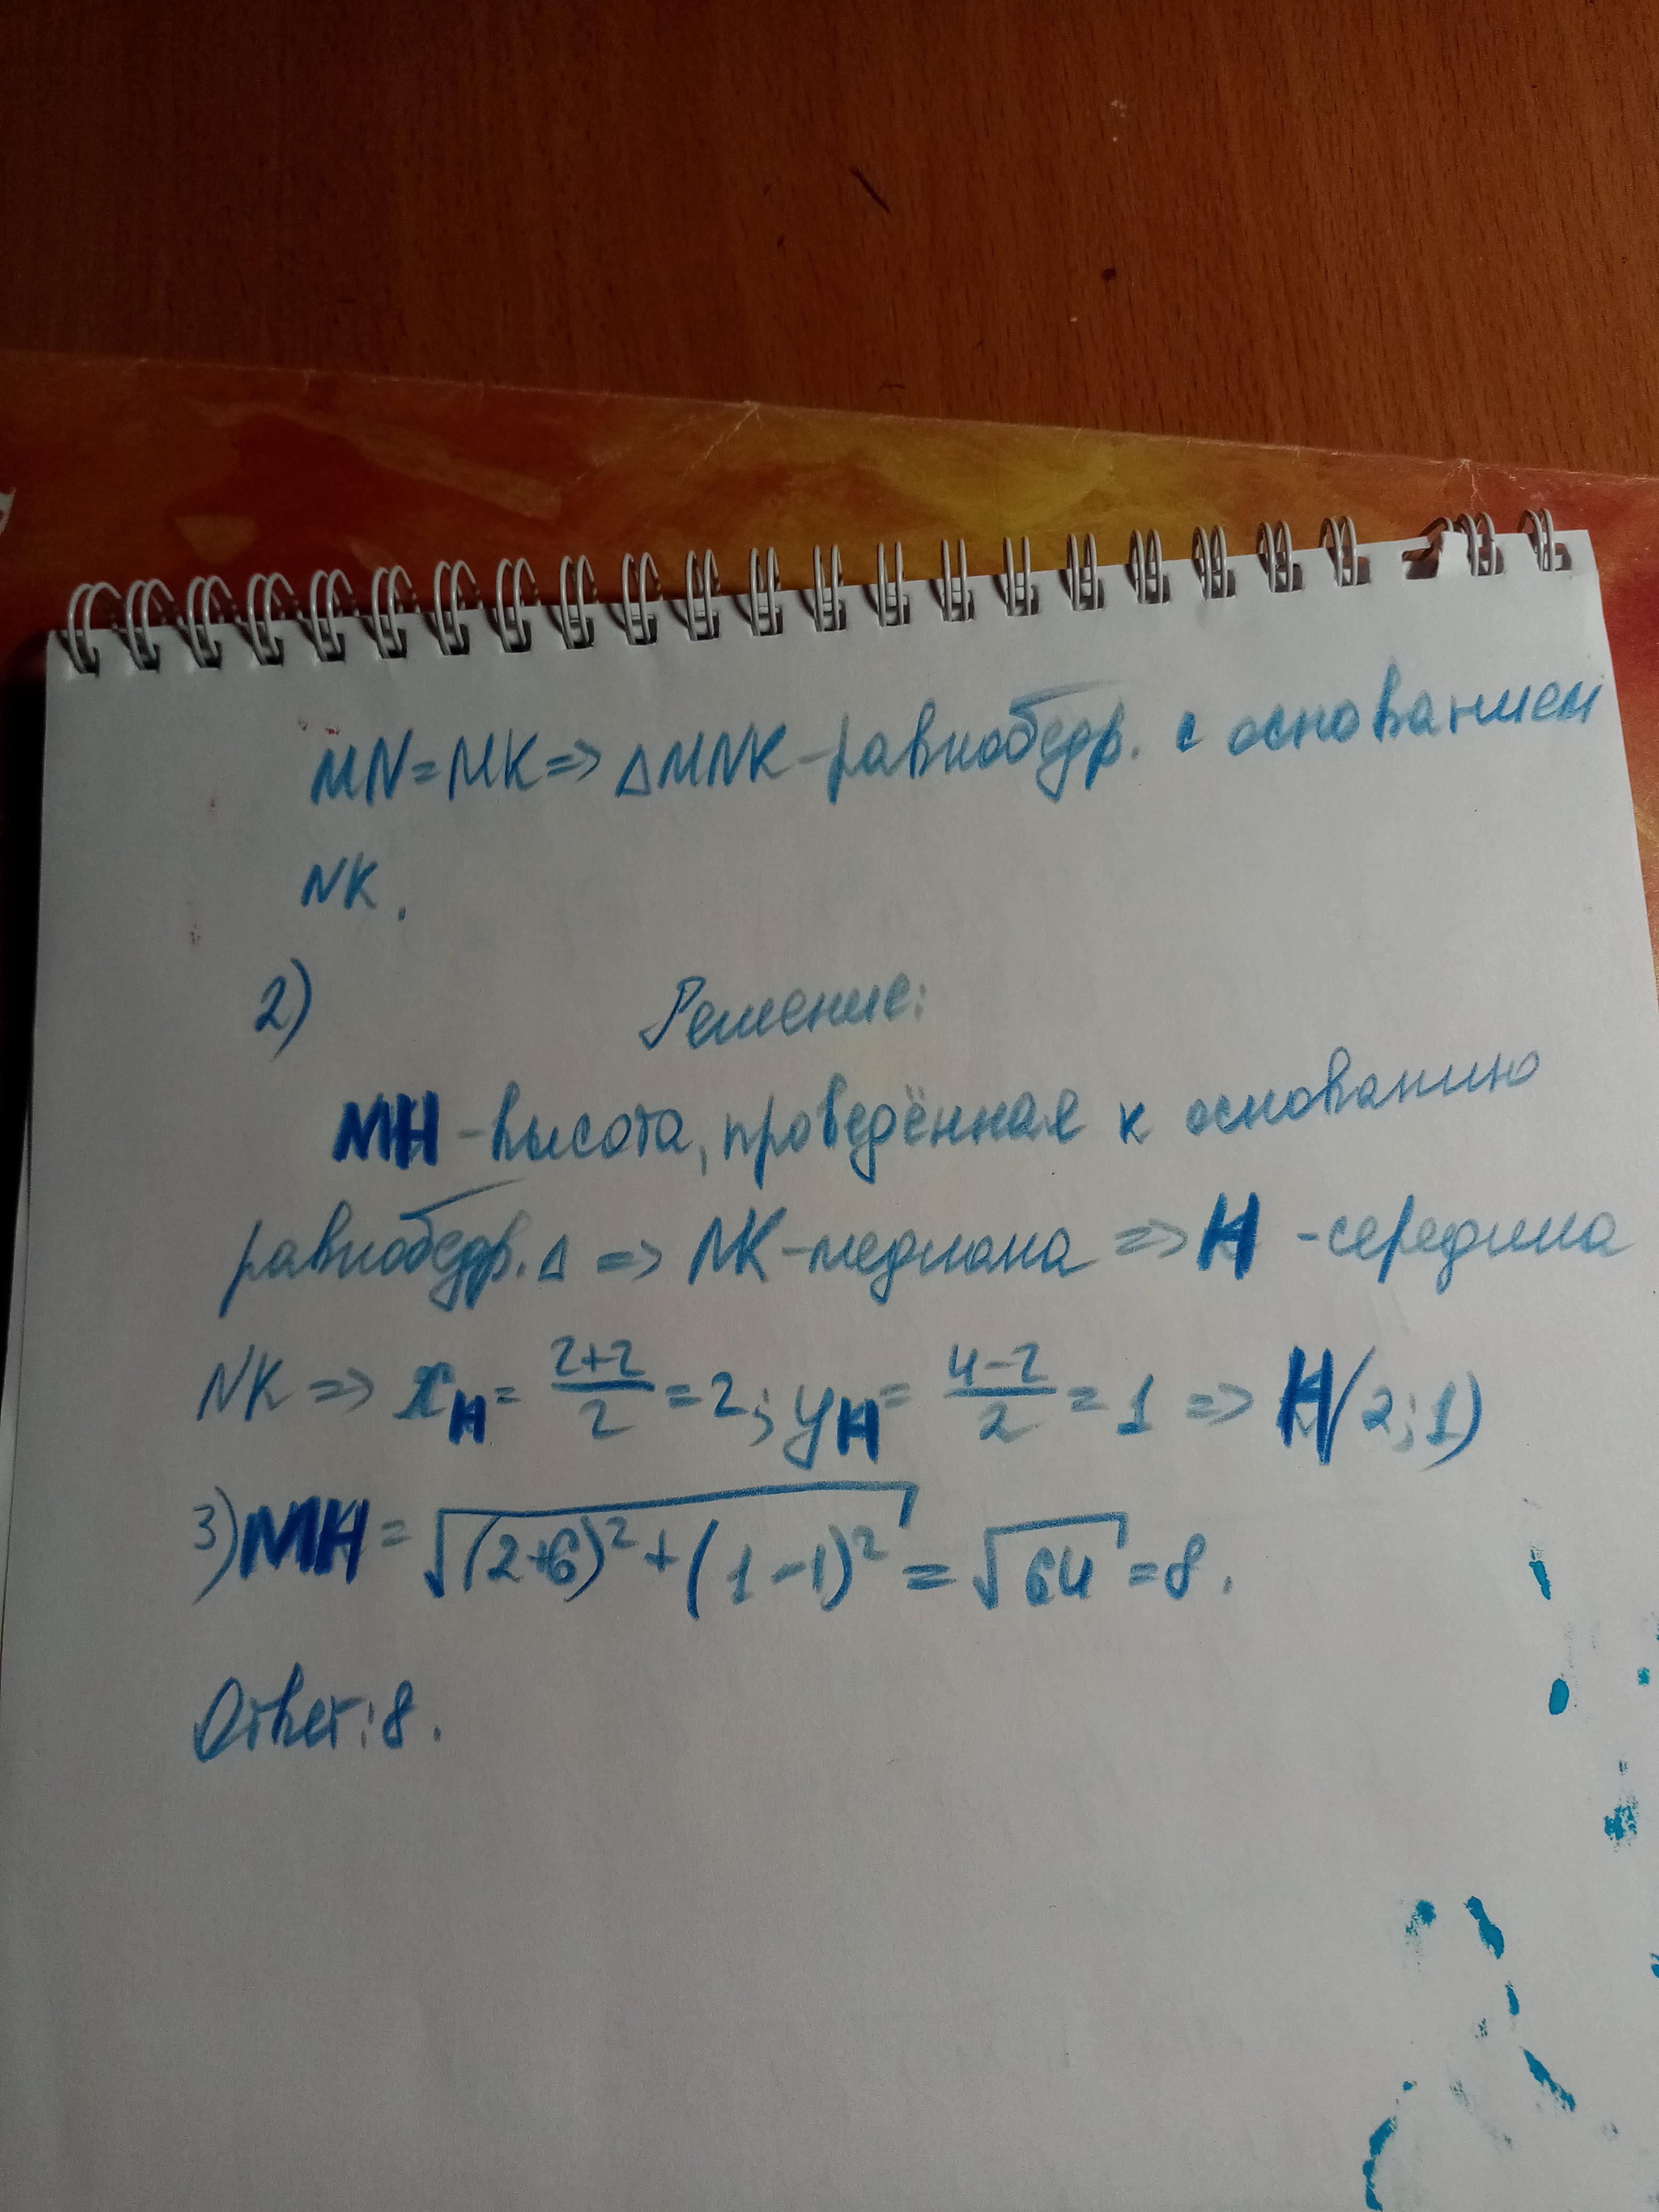 MN=MK=> ΔMNK-равнобедр. с основанием
NK.
2) Решение:
MH-высота, проведённая к основанию
равнобедр. Δ => MK-медиана => H -середина
NK => xH= (2+2)/2 =2; yH= (4-2)/2 = 1 => H(2;1)
3)MH=√((2+6)²+(1-1)²) = √64 =8.
Ответ:8.